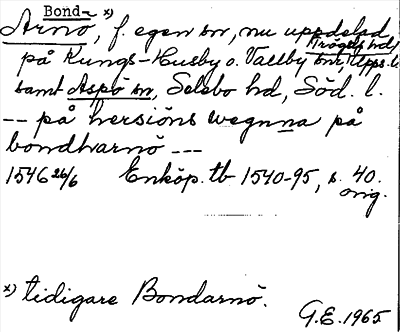 Bond- x)
Arnö, f. egen sn, nu uppdelad
på Kungs-Husby o. Vallby snr, Trögds hd, Upps. l.
samt Aspö sn, Selebo hd, Söd. l.
-- på hersiöns wegnna på
bondharnö ---
1546 26/6 Enköp. tb 1540-95, s. 40.
orig.
x) tidigare Bondarnö.
G.E. 1965